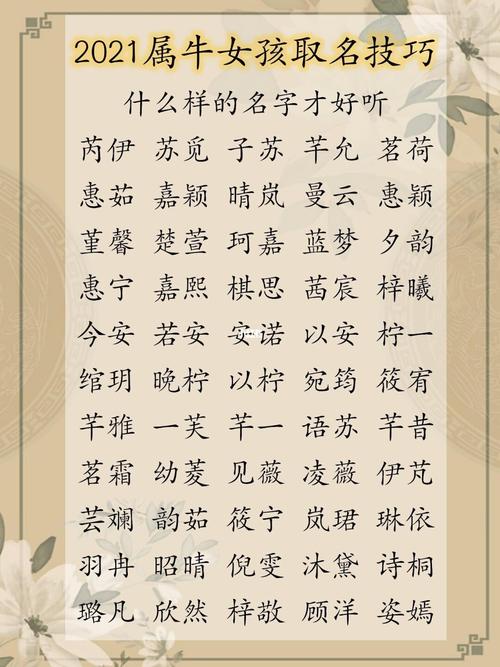 2021属牛女孩取名技巧
什么样的名字才好听
芮伊 苏觅 子苏 芊允 茗荷
惠茹 嘉颖 晴岚 曼云 惠颖
堇馨 楚萱 珂嘉 蓝梦 夕韵
惠宁 嘉熙 棋思 茜宸 梓曦
今安 若安 安诺 以安 柠一
绾玥 晚柠 以柠 宛筠 筱宥
芊雅 一芙 芊一 语苏 芊昔
茗霜 幼菱 见薇 凌薇 伊芃
芸斓 韵茹 筱宁 岚珺 琳依
羽冉 昭晴 倪雯 沐黛 诗桐
璐凡 欣然 梓敬 顾洋 姿嫣